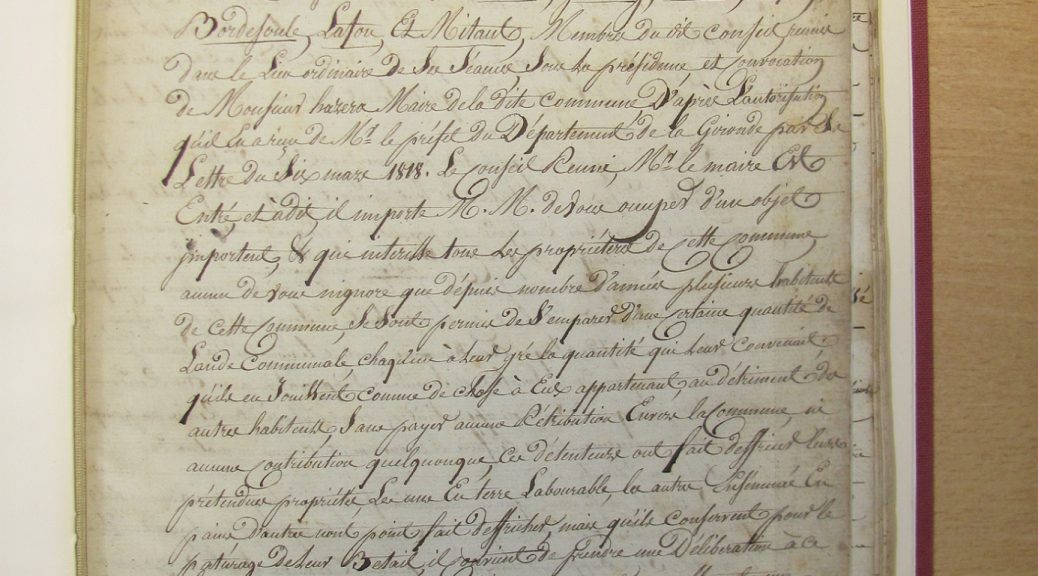 Bordesoule, Lafon, Et Mitaut, Membres du dit Conseil, reunis
dans le Lieu ordinaire de Ses Séances, Sous La présidence et Convocation
de Monsieur hazera Maire de la dite commune D'après L'autorisation
qu'il En a reçue de Mr. le préfet du Département de la Gironde par Sa
Lettre du Six mars 1818. Le Conseil Reuni, Mr. le maire Est
Entré et à dit, il importe M. M. de vous occuper d'un objet
importent, & qui interesse tous Les propriétéres de cette Commune,
aucun de vous n'ignore que dépuis nombre d'années plusieurs habitents
de cette Commune, Se Sont permis de S'emparer d'une Certaine quantité de
Lande Communale, chaq'un à Leur gré la quantité qui Leur Convenait,
qu'ils en Jouissent Comme de chose à Eux appartenant, au détriment des
autres habitents Sans payer aucune Rétribution Envers la Commune, ni
aucune Contribution quelquonque, Ces détenteurs ont fait deffricher leurs
prétendues propriétés, Les uns En terre Labourable, les autres Ensémencés En
pins d'autre n'ont point fait deffricher, mais qu'ils Conservent pour le
paturage de Leur Betail, il Convient de prendre une Déliberation à Ce